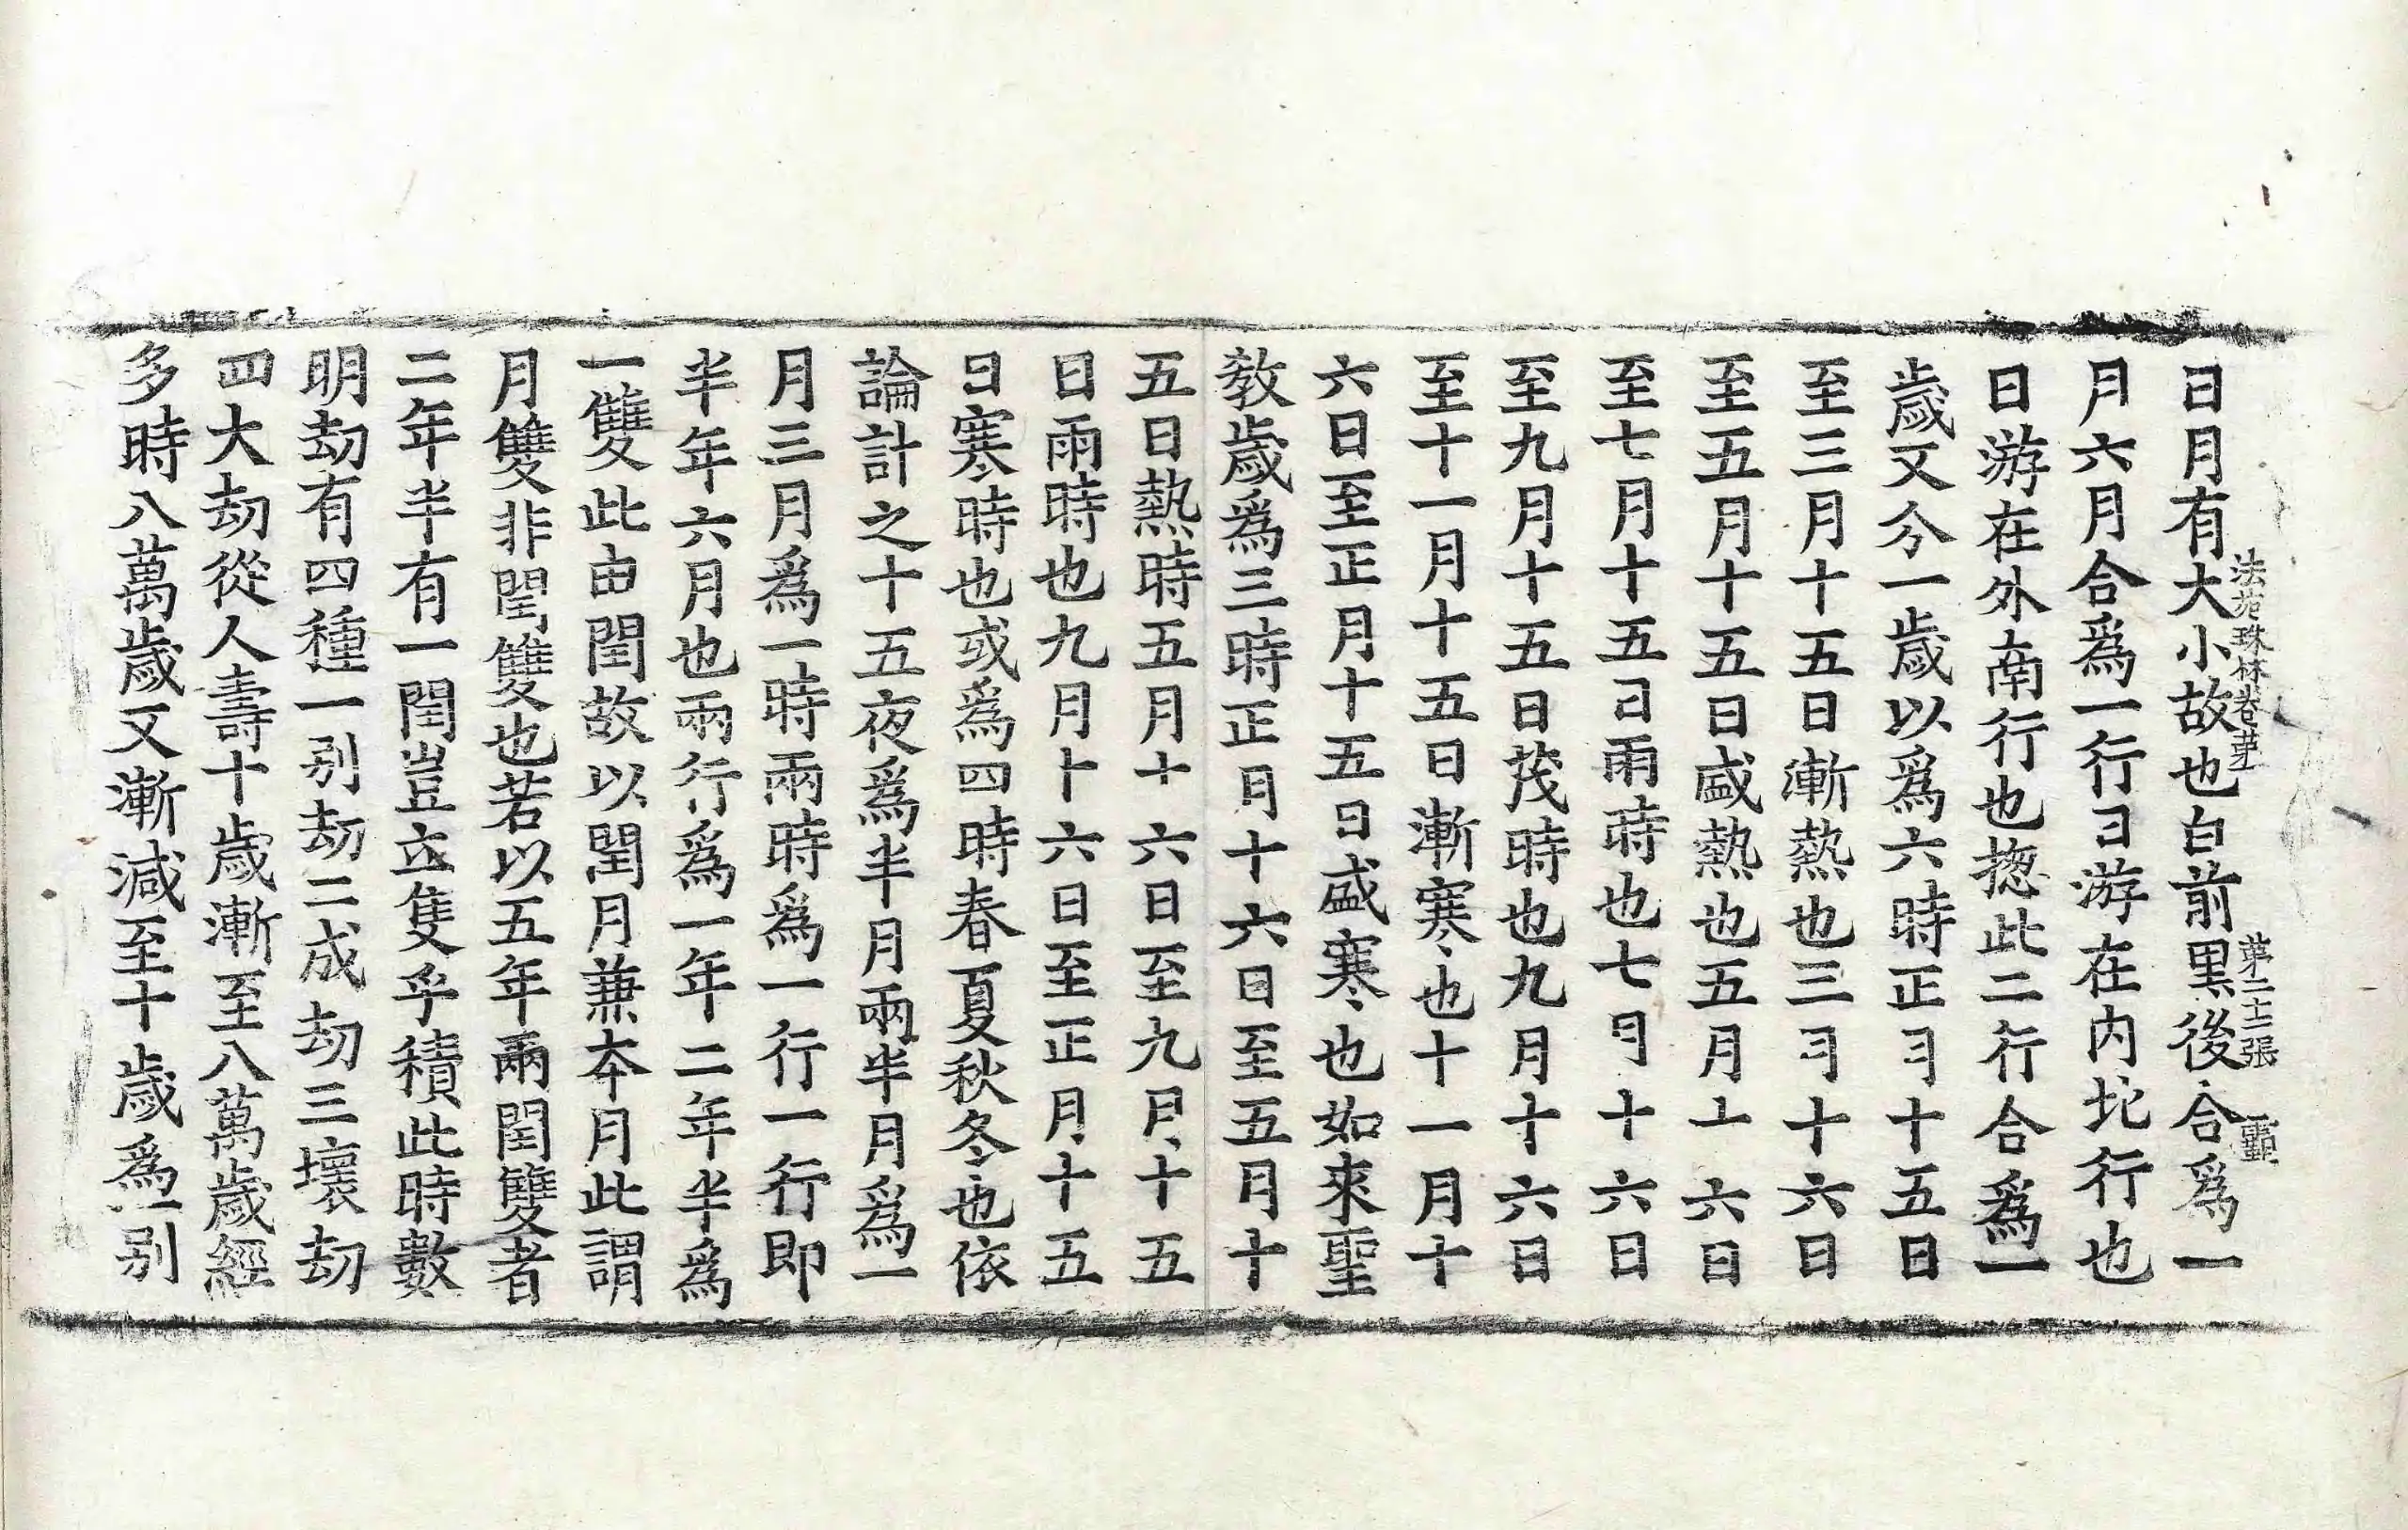 日月有大小故也白前黑後合爲一
法苑珠林卷第一　第二十二張　覇
月六月合爲一行日游在内北行也
日游在外南行也揔此二行合爲一
歲又分一歲以爲六時正月十五日
至三月十五日漸熱也三月十六日
至五月十五日盛熱也五月十六日
至七月十五日雨時也七月十六日
至九月十五日茂時也九月十六日
至十一月十五日漸寒也十一月十
六日至正月十五日盛寒也如來聖
教歲爲三時正月十六日至五月十
五日熱時五月十六日至九月十五
日雨時也九月十六日至正月十五
日寒時也或爲四時春夏秋冬也依
論計之十五夜爲半月兩半月爲一
月三月爲一時兩時爲一行一行即
半年六月也兩行爲一年二年半爲
一雙此由閏故以閏月兼本月此謂
月雙非閏雙也若以五年兩閏雙者
二年半有一閏豈立隻乎積此時數
明劫有四種一别劫二成劫三壞劫
四大劫從人壽十歲漸至八萬歲經
多時八萬歲又漸減至十歲爲一别